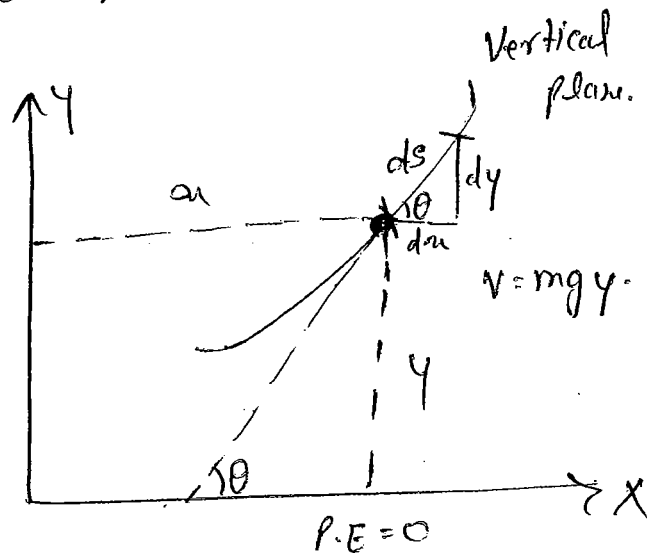 Vertical
plane.
Y
ds
dy
x
θ
dx
V = mgy.
y
θ
X
P.E = 0